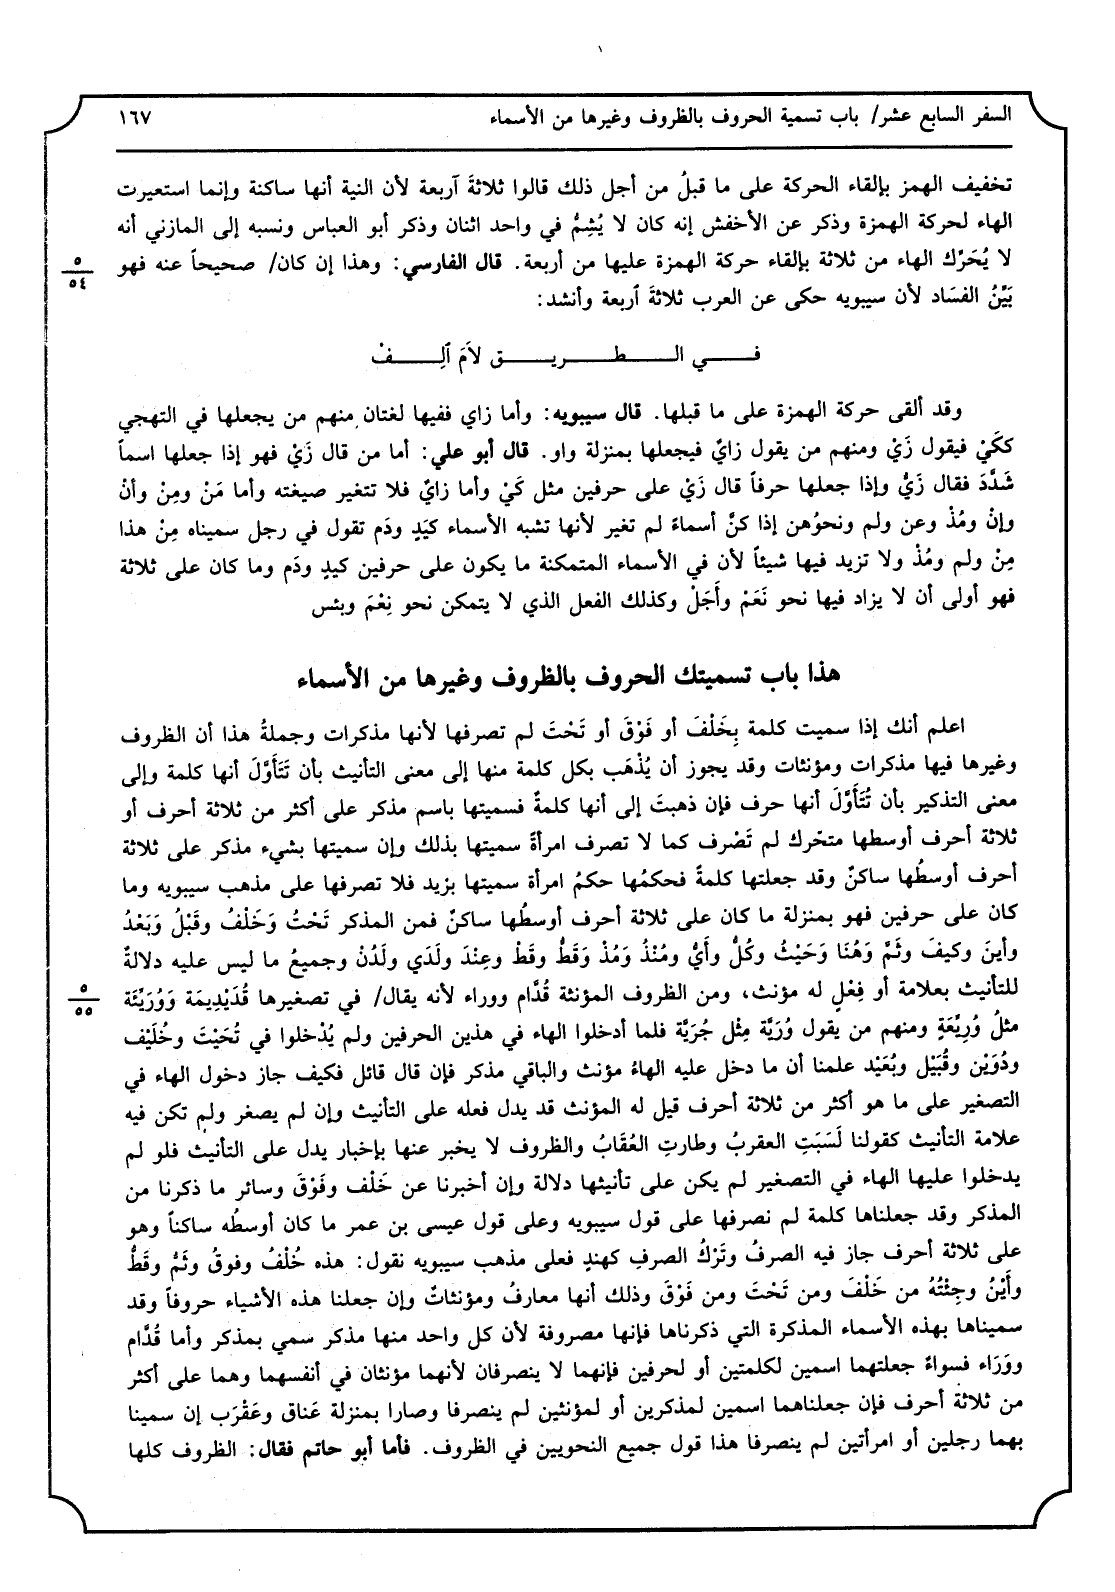 السفر السابع عشر/ باب تسمية الحروف بالظروف وغيرها من الأسماء ١٦٧
تخفيف الهمز بإلقاء الحركة على ما قبلُ من أجل ذلك قالوا ثلاثةَ آربعة لأن النية أنها ساكنة وإنما استعيرت
الهاء لحركة الهمزة وذكر عن الأخفش إنه كان لا يُشِمُّ في واحد اثنان وذكر أبو العباس ونسبه إلى المازني أنه
لا يُحَرَّك الهاء من ثلاثة بإلقاء حركة الهمزة عليها من أربعة. قال الفارسي: وهذا إن كان/ صحيحاً عنه فهو
٥
٥٤
بَيِّنُ الفسَاد لأن سيبويه حكى عن العرب ثلاثةَ آربعة وأنشد:
فـــي الـــطـــريـــق لاَمَ آلِـــفْ
وقد ألقى حركة الهمزة على ما قبلها. قال سيبويه: وأما زاي ففيها لغتان منهم من يجعلها في التهجي
ككَيْ فيقول زَيْ ومنهم من يقول زايْ فيجعلها بمنزلة واو. قال أبو علي: أما من قال زَيْ فهو إذا جعلها اسماً
شَدَّدَ فقال زَيُّ وإذا جعلها حرفاً قال زَيْ على حرفين مثل كَيْ وأما زايْ فلا تتغير صيغته وأما مَنْ ومِنْ وأنْ
وإنْ ومُذْ وعن ولم ونحوُهن إذا كنَّ أسماءً لم تغير لأنها تشبه الأسماء كيَدٍ ودَم تقول في رجل سميناه مِنْ هذا
مِنْ ولم ومُذْ ولا تزيد فيها شيئاً لأن في الأسماء المتمكنة ما يكون على حرفين كيدٍ ودَم وما كان على ثلاثة
فهو أولى أن لا يزاد فيها نحو نَعَمْ وأَجَلْ وكذلك الفعل الذي لا يتمكن نحو نِعْمَ وبئس
هذا باب تسميتك الحروف بالظروف وغيرها من الأسماء
اعلم أنك إذا سميت كلمة بِخَلْفَ أو فَوْقَ أو تَحْتَ لم تصرفها لأنها مذكرات وجملةُ هذا أن الظروف
وغيرها فيها مذكرات ومؤنثات وقد يجوز أن يُذْهَب بكل كلمة منها إلى معنى التأنيث بأن تَتَأَوَّلَ أنها كلمة وإلى
معنى التذكير بأن تُتَأَوَّلَ أنها حرف فإن ذهبتَ إلى أنها كلمةٌ فسميتها باسم مذكر على أكثر من ثلاثة أحرف أو
ثلاثة أحرف أوسطها متحْرك لم تَصْرف كما لا تصرف امرأةً سميتها بذلك وإن سميتها بشيء مذكر على ثلاثة
أحرف أوسطُها ساكنٌ وقد جعلتها كلمةً فحكمُها حكمُ امرأة سميتها بزيد فلا تصرفها على مذهب سيبويه وما
كان على حرفين فهو بمنزلة ما كان على ثلاثة أحرف أوسطُها ساكنٌ فمن المذكر تَحْتُ وَخَلْفُ وقَبْلُ وَبَعْدُ
وأينَ وكيفَ وثَمَّ وَهُنَا وَحَيْثُ وكُلُّ وأَيُّ ومُنْذُ وَمُذْ وَقَطُّ وقَطْ وعِنْدَ ولَدَي ولَدُنْ وجميعُ ما ليس عليه دلالةٌ
للتأنيث بعلامة أو فِعْلٍ له مؤنث، ومن الظروف المؤنثة قُدَّام ووراء لأنه يقال/ في تصغيرها قُدَيْدِيمَة وَوُرَيِّئَة
٥
٥٥
مثلُ وُرِيِّعَةٍ ومنهم من يقول وُرَيَّة مِثْل جُرَيَّة فلما أدخلوا الهاء في هذين الحرفين ولم يُدْخلوا في تُحَيْتَ وخُلَيْف
ودُوَيْن وقُبَيْل وبُعَيْد علمنا أن ما دخل عليه الهاءُ مؤنث والباقي مذكر فإن قال قائل فكيف جاز دخول الهاء في
التصغير على ما هو أكثر من ثلاثة أحرف قيل له المؤنث قد يدل فعله على التأنيث وإن لم يصغر ولم تكن فيه
علامة التأنيث كقولنا لَسَبَتِ العقربُ وطارتِ العُقَابُ والظروف لا يخبر عنها بإخبار يدل على التأنيث فلو لم
يدخلوا عليها الهاء في التصغير لم يكن على تأنيثها دلالة وإن أخبرنا عن خَلْف وفَوْقَ وسائر ما ذكرنا من
المذكر وقد جعلناها كلمة لم نصرفها على قول سيبويه وعلى قول عيسى بن عمر ما كان أوسطُه ساكناً وهو
على ثلاثة أحرف جاز فيه الصرفُ وتَرْكُ الصرفِ كهندٍ فعلى مذهب سيبويه نقول: هذه خُلْفُ وفوقُ وثَمُّ وقَطُّ
وأَيْنُ وجِئْتُهُ من خَلْفَ ومن تَحْتَ ومن فَوْقَ وذلك أنها معارفُ ومؤنثاتٌ وإن جعلنا هذه الأشياء حروفاً وقد
سميناها بهذه الأسماء المذكرة التي ذكرناها فإنها مصروفة لأن كل واحد منها مذكر سمي بمذكر وأما قُدَّام
ووَرَاء فسواءٌ جعلتهما اسمين لكلمتين أو لحرفين فإنهما لا ينصرفان لأنهما مؤنثان في أنفسهما وهما على أكثر
من ثلاثة أحرف فإن جعلناهما اسمين لمذكرين أو لمؤنثين لم ينصرفا وصارا بمنزلة عَناق وعَقْرَب إن سمينا
بهما رجلين أو امرأتين لم ينصرفا هذا قول جميع النحويين في الظروف. فأما أبو حاتم فقال: الظروف كلها